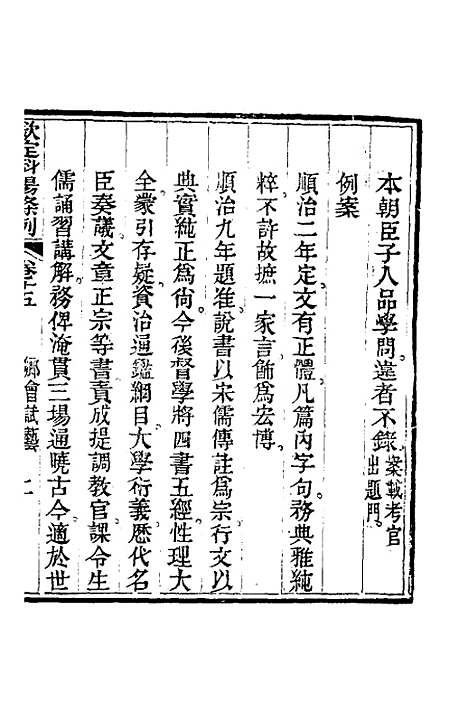 本朝臣子人品學問違者不錄案載考官出題門
例案
順治二年定文有正體凡篇內字句務典雅純
粹不許故摭一家言飾爲宏博
順治九年題准說書以宋儒傳註爲宗行文以
典實純正爲尙今後督學將四書五經性理大
全蒙引存疑資治通鑑綱目大學衍義歷代名
臣奏議文章正宗等書責成提調教官課令生
儒誦習講解務俾淹貫三場通曉古今適於世
欽定科場條例 卷十五 鄉會試藝 二